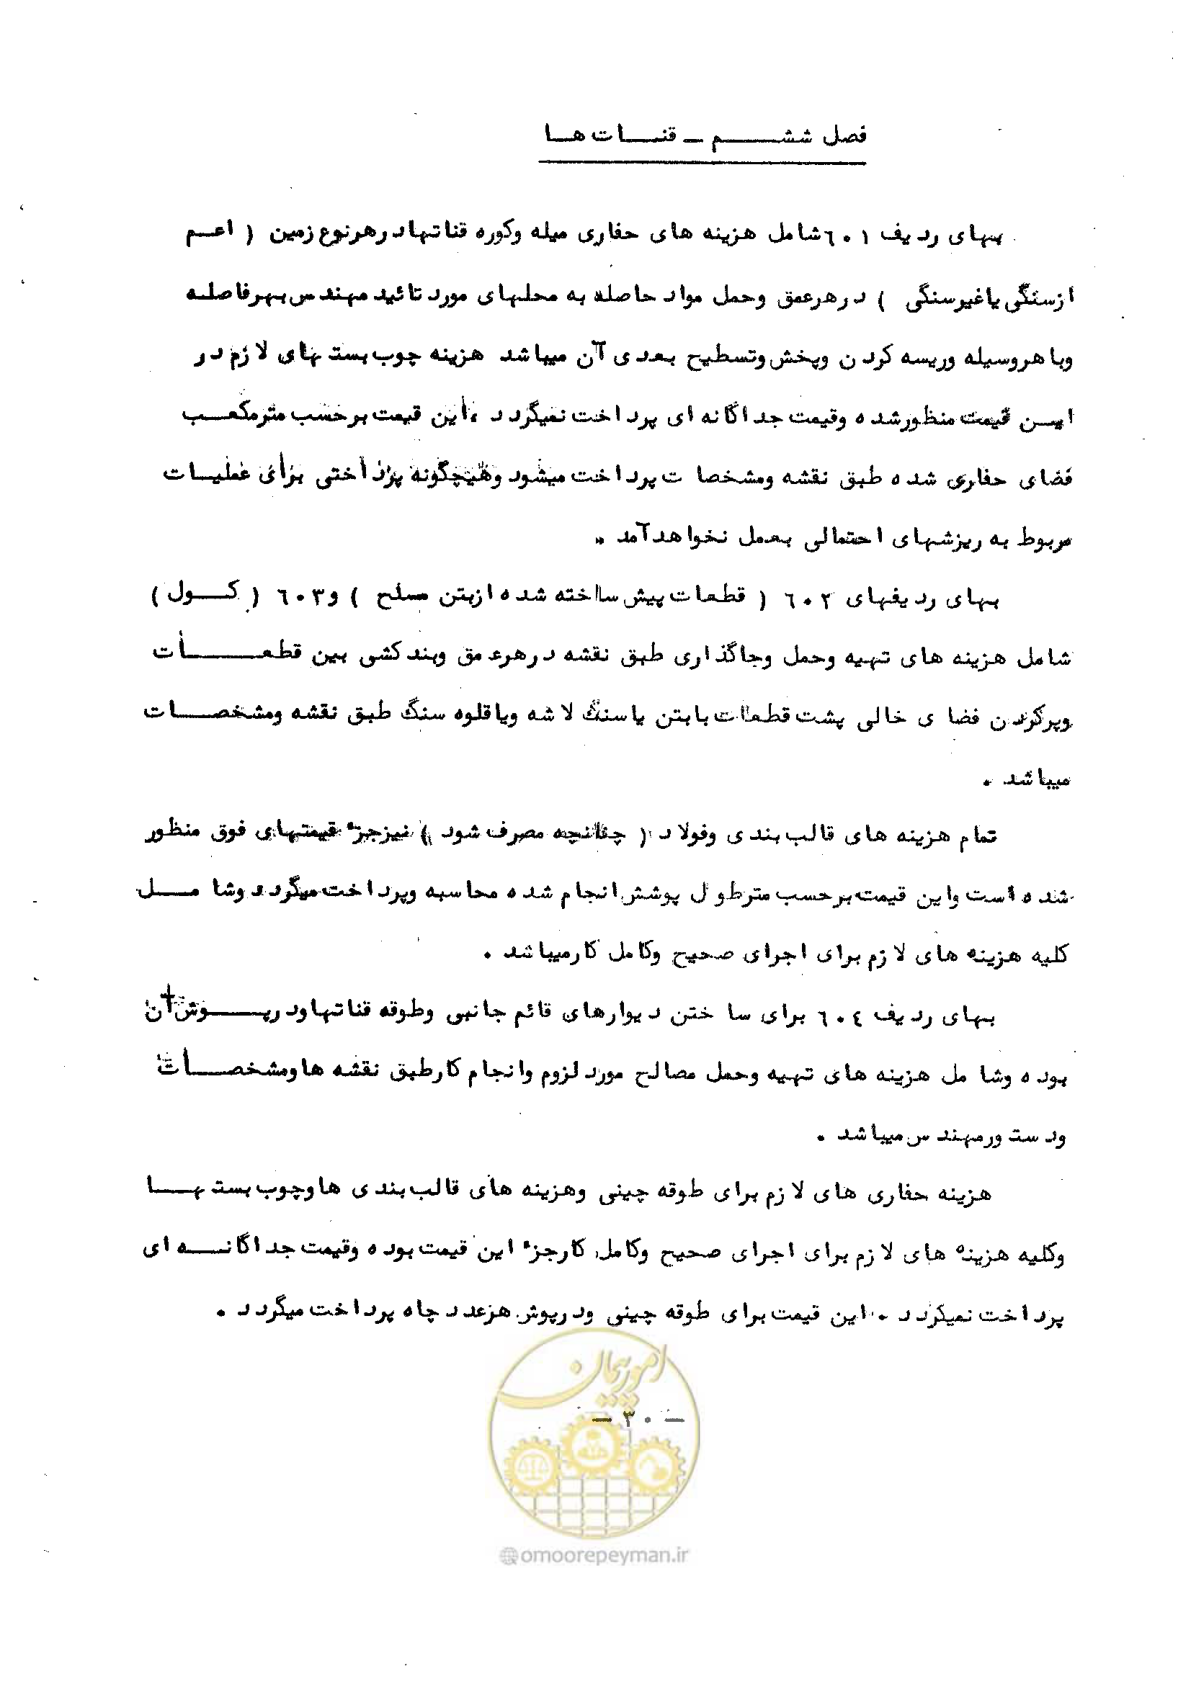 فصل ششم - قنات ها
بهای ردیف ٦٠١ شامل هزینه های حفاری میله وکوره قناتها در هرنوع زمین ( اعم
ازسنگی یاغیرسنگی ) در هرعمق وحمل مواد حاصله به محلهای مورد تائید مهندس بهرفاصله
وباهروسیله وریسه کردن وپخش وتسطیح بعدی آن میباشد هزینه چوب بست های لازم در
این قیمت منظورشده وقیمت جداگانه ای پرداخت نمیگردد ، این قیمت برحسب مترمکعب
فضای حفاری شده طبق نقشه ومشخصات پرداخت میشود وهیچگونه پرداختی برای عملیات
مربوط به ریزشهای احتمالی بعمل نخواهدآمد .
بهای ردیفهای ٦٠٢ ( قطعات پیش ساخته شده ازبتن مسلح ) و٦٠٣ ( کول )
شامل هزینه های تهیه وحمل وجاگذاری طبق نقشه در هرعمق وبندکشی بین قطعات
وپرکردن فضای خالی پشت قطعات بابتن یاسنگ لاشه ویاقلوه سنگ طبق نقشه ومشخصات
میباشد .
تمام هزینه های قالب بندی وفولاد ( چنانچه مصرف شود ) نیزجزء قیمتهای فوق منظور
شده است واین قیمت برحسب مترطول پوشش انجام شده محاسبه وپرداخت میگردد وشامل
کلیه هزینه های لازم برای اجرای صحیح وکامل کارمیباشد .
بهای ردیف ٦٠٤ برای ساختن دیوارهای قائم جانبی وطوقه قناتها ودرپوش آن
بوده وشامل هزینه های تهیه وحمل مصالح مورد لزوم وانجام کارطبق نقشه ها ومشخصات
ودستورمهندس میباشد .
هزینه حفاری های لازم برای طوقه چینی وهزینه های قالب بندی ها وچوب بست ها
وکلیه هزینه های لازم برای اجرای صحیح وکامل کارجزء این قیمت بوده وقیمت جداگانه ای
پرداخت نمیگردد . این قیمت برای طوقه چینی ودرپوش هرعدد چاه پرداخت میگردد .
امور پیمان
- ٣٠ -
omoorepeyman.ir